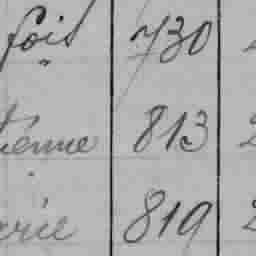 fois 730
ienne 813
rie 819